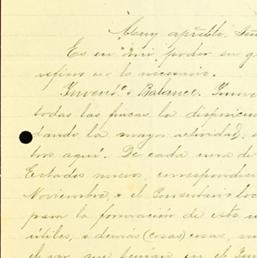 Muy apble. Señ
Es en mi poder su g
refiero en lo necesario.
Invento. & Balance.
todas las fincas la disposición
dando la mayor actividad,
tos aquí. De cada una de
Estados nuevos, correspondien
Noviembre, & el Inventario loc
para la formación de este
útiles, & demás (cosas) cosas,
el uso, que tenían en el Inv